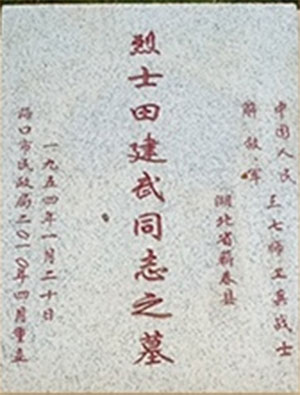 中国人民
解放军
三七师工兵战士
湖北省蕲春县
烈士田建武同志之墓
一九五四年一月二十日
海口市民政局二〇一〇年四月重立